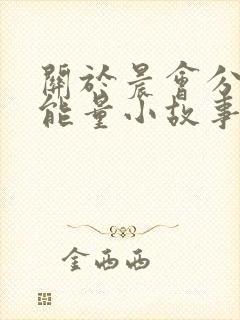 關於晨會分
能量小故事
金西西